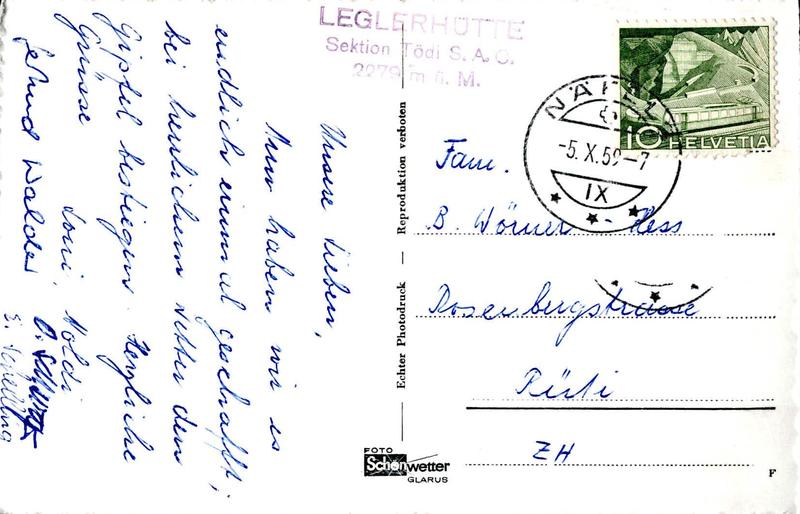 LEGLERHÜTTE
Sektion Tödi S. A. C.
2279 m ü. M.
Unsere Lieben,
Nun haben wir es
endlich einmal geschafft;
bei herrlichem Wetter den
Gipfel bestiegen. Herzliche
Grüsse Toni, Noldi
Walder
HELVETIA
10
NÄFELS
-5.X.59-7
IX
Fam.
B. Wörner - Hess
Rosenbergstrasse
Rüti
ZH
Echter Photodruck — Reproduktion verboten
FOTO
Schönwetter
GLARUS
F